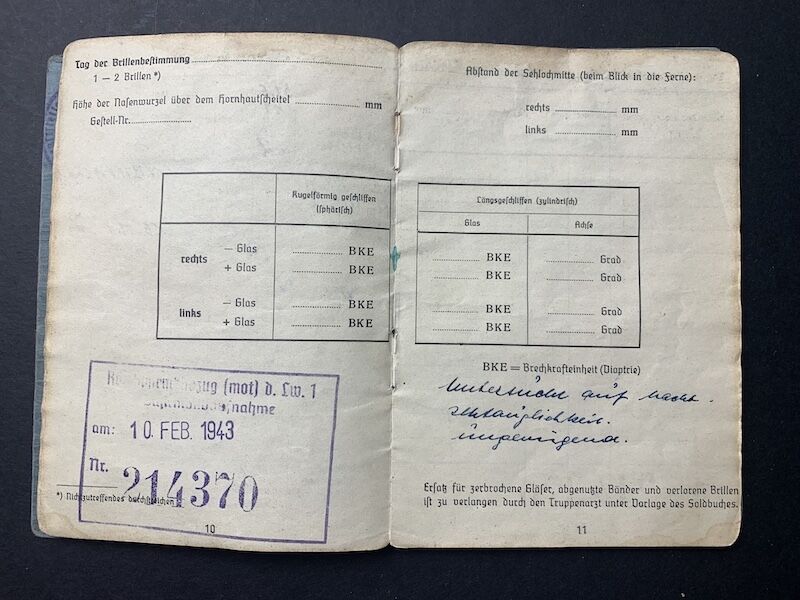 Tag der Brillenbestimmung
1 — 2 Brillen *)
Höhe der Nasenwurzel über dem Hornhautscheitel mm
Gestell-Nr.
Kugelförmig geschliffen
(sphärisch)
rechts — Glas BKE
+ Glas BKE
links — Glas BKE
+ Glas BKE
(mot) d. Lw. 1
am: 10. FEB. 1943
Nr. 214370
*) Nichtzutreffendes durchstreichen
10
Abstand der Sehlochmitte (beim Blick in die Ferne):
rechts mm
links mm
Längsgeschliffen (zylindrisch)
Glas Achse
BKE Grad
BKE Grad
BKE Grad
BKE Grad
BKE = Brechkrafteinheit (Dioptrie)
Untersucht auf Nacht-
ungenügend.
Ersatz für zerbrochene Gläser, abgenutzte Bänder und verlorene Brillen
ist zu verlangen durch den Truppenarzt unter Vorlage des Soldbuches.
11